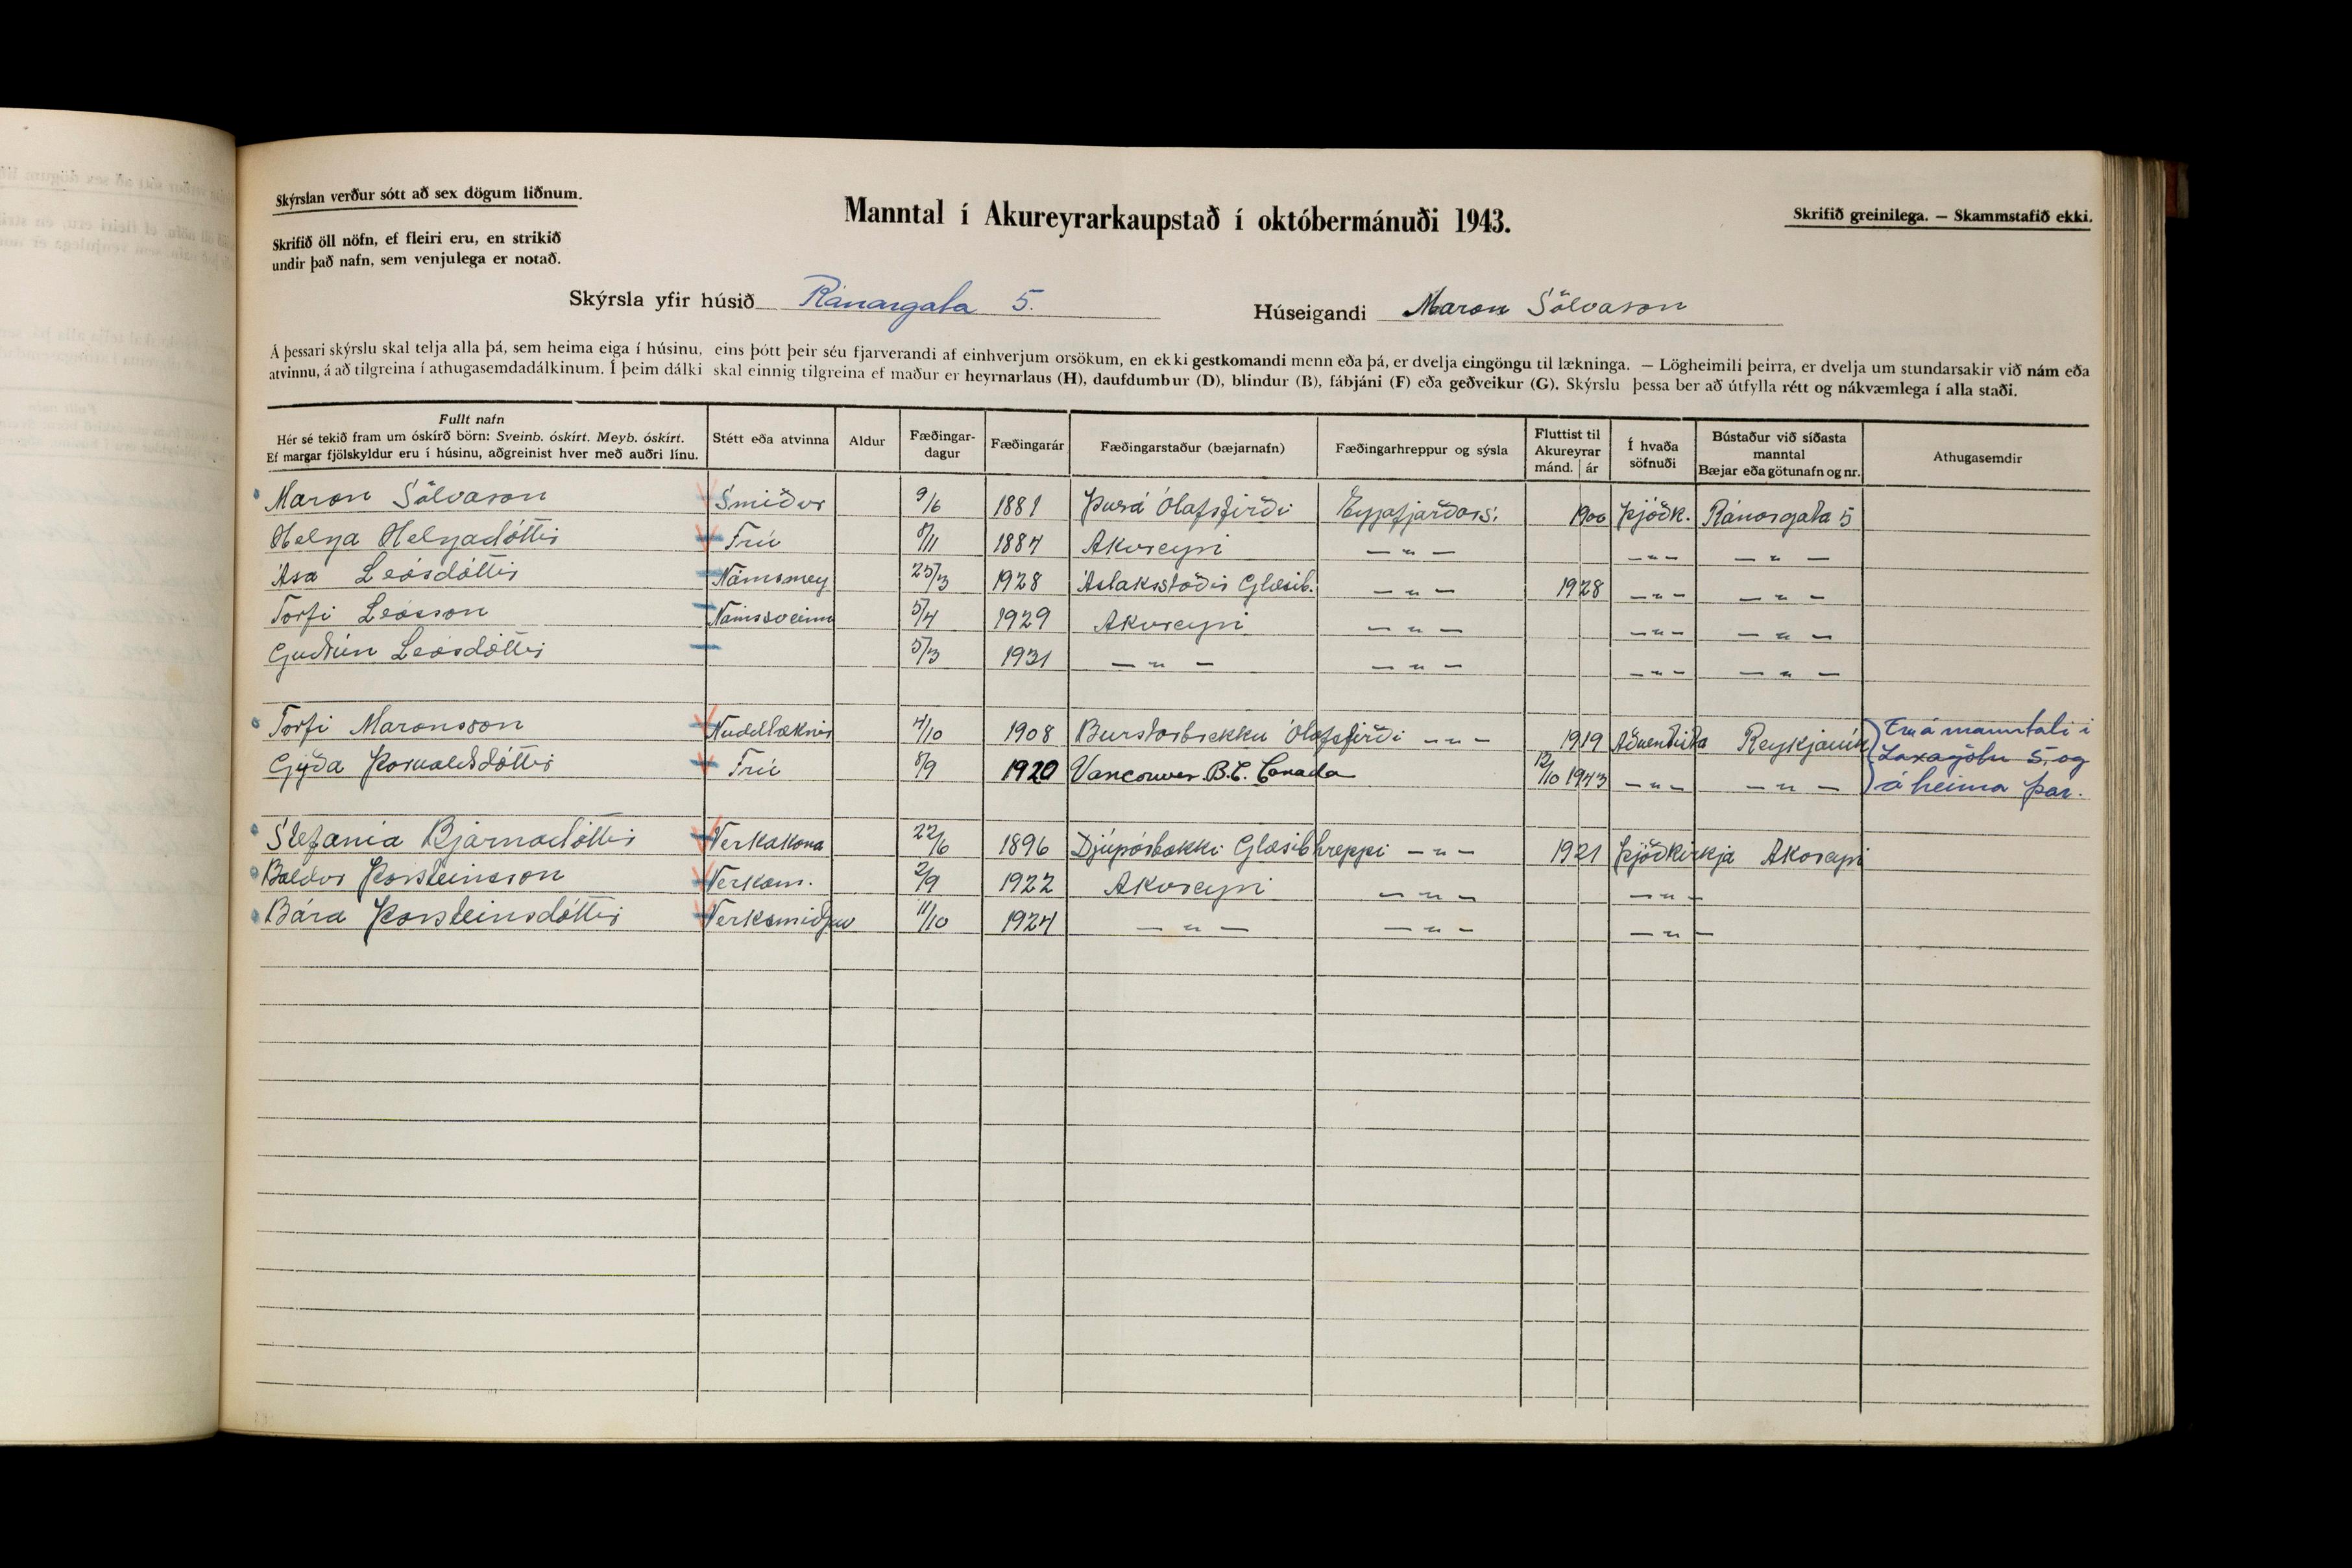 Skýrslan verður sótt að sex dögum liðnum.
Manntal í Akureyrarkaupstað í októbermánuði 1943.
Skrifið greinilega. — Skammstafið ekki.
Skrifið öll nöfn, ef fleiri eru, en strikið
undir það nafn, sem venjulega er notað.
Skýrsla yfir húsið Ránargata 5. Húseigandi Maron Sölvason
Á þessari skýrslu skal telja alla þá, sem heima eiga í húsinu, eins þótt þeir séu fjarverandi af einhverjum orsökum, en ekki gestkomandi menn eða þá, er dvelja eingöngu til lækninga. — Lögheimili þeirra, er dvelja um stundarsakir við nám eða
atvinnu, á að tilgreina í athugasemdadálkinum. Í þeim dálki skal einnig tilgreina ef maður er heyrnarlaus (H), daufdumbur (D), blindur (B), fábjáni (F) eða geðveikur (G). Skýrslu þessa ber að útfylla rétt og nákvæmlega í alla staði.
Fullt nafn
Hér sé tekið fram um óskírð börn: Sveinb. óskírt. Meyb. óskírt.
Ef margar fjölskyldur eru í húsinu, aðgreinist hver með auðri línu.
Stétt eða atvinna
Aldur
Fæðingar-
dagur
Fæðingarár
Fæðingarstaður (bæjarnafn)
Fæðingarhreppur og sýsla
Fluttist til
Akureyrar
mánd. ár
Í hvaða
söfnuði
Bústaður við síðasta
manntal
Bæjar eða götunafn og nr.
Athugasemdir
Maron Sölvason Smiður 9/6 1881 Þurá Ólafsfirði Eyjafjarðars. 1906 Þjóðk. Ránargata 5
Helga Helgadóttir Frú 8/11 1884 Akureyri — " — — " — — " —
Ása Leósdóttir Námsmey 25/3 1928 Áslaksstöðir Glæsib. — " — 1928 — " — — " —
Torfi Leósson Námssveinn 5/4 1929 Akureyri — " — — " — — " —
Guðrún Leósdóttir 5/3 1931 — " — — " — — " — — " —
Torfi Maronsson Nuddlæknir 4/10 1908 Burstarbrekku Ólafsfirði — " — 1919 Aðventista Reykjavík
Gyða Þorvaldsdóttir Frú 8/9 1920 Vancouver B.C. Canada 12/10 1943 — " — — " —
Eru á manntali í
Laxagötu 5, og
á heima þar.
Stefanía Bjarnadóttir Verkakona 22/6 1896 Djúpárbakki Glæsibhreppi — " — 1921 Þjóðkirkja Akureyri
Baldur Þorsteinsson Verkam. 2/9 1922 Akureyri — " — — " —
Bára Þorsteinsdóttir Verksmiðjuv 11/10 1924 — " — — " — — " —